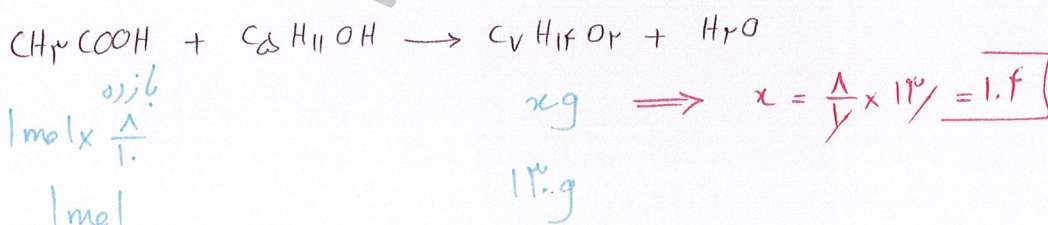 CH۳COOH + C۵H۱۱OH ⟶ C۷H۱۴O۲ + H۲O
بازده
۱mol × ۸/۱۰ xg ⟹ x = ۸/۱۰ × ۱۳۰ = ۱۰۴
۱mol ۱۳۰g